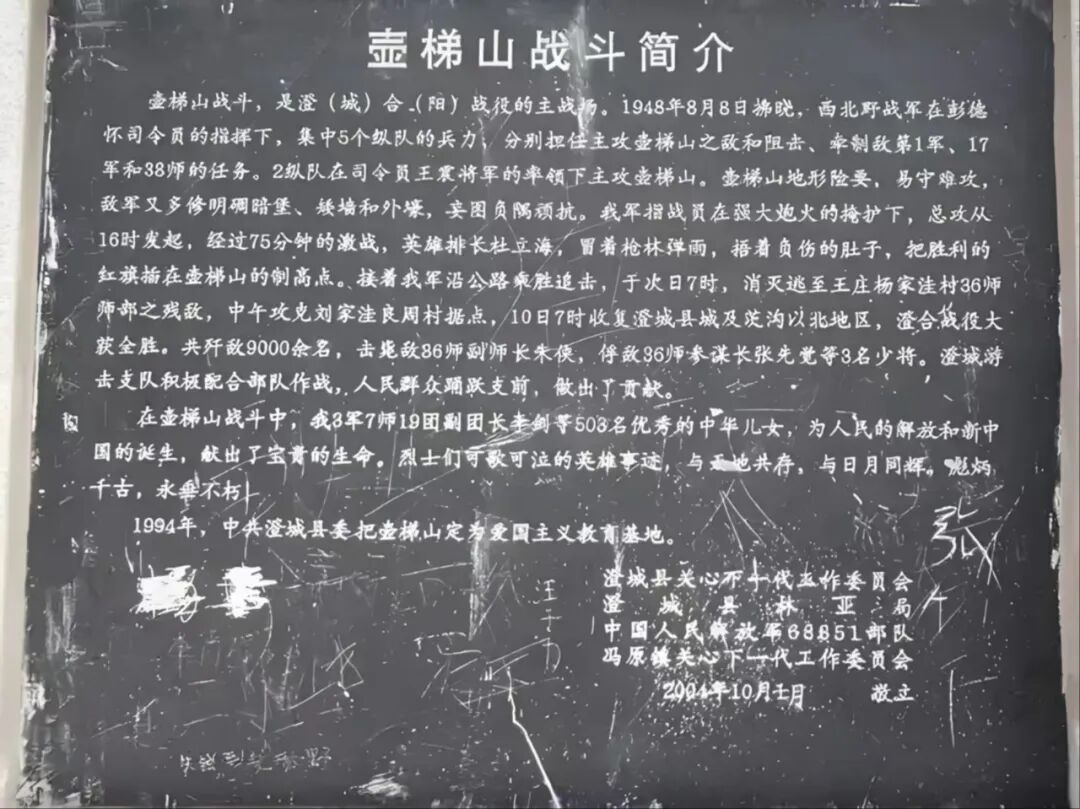 壶梯山战斗简介
壶梯山战斗，是澄（城）合（阳）战役的主战场。1948年8月8日拂晓，西北野战军在彭德
怀司令员的指挥下，集中5个纵队的兵力，分别担任主攻壶梯山之敌和阻击、牵制敌第1军、17
军和38师的任务。2纵队在司令员王震将军的率领下主攻壶梯山。壶梯山地形险要，易守难攻，
敌军又多修明碉暗堡、矮墙和外壕，妄图负隅顽抗。我军指战员在强大炮火的掩护下，总攻从
16时发起，经过75分钟的激战，英雄排长杜立海，冒着枪林弹雨，捂着负伤的肚子，把胜利的
红旗插在壶梯山的制高点。接着我军沿公路乘胜追击，于次日7时，消灭逃至王庄杨家洼村36师
师部之残敌，中午攻克刘家洼良周村据点，10日7时收复澄城县城及茨沟以北地区，澄合战役大
获全胜。共歼敌9000余名，击毙敌36师副师长朱侠，俘敌36师参谋长张先觉等3名少将。澄城游
击支队积极配合部队作战，人民群众踊跃支前，做出了贡献。
在壶梯山战斗中，我3军7师19团副团长李剑等503名优秀的中华儿女，为人民的解放和新中
国的诞生，献出了宝贵的生命。烈士们可歌可泣的英雄事迹，与天地共存，与日月同辉。彪炳
千古，永垂不朽！
1994年，中共澄城县委把壶梯山定为爱国主义教育基地。
澄城县关心下一代工作委员会
澄城县林业局
中国人民解放军63851部队
冯原镇关心下一代工作委员会
2004年10月1日 敬立